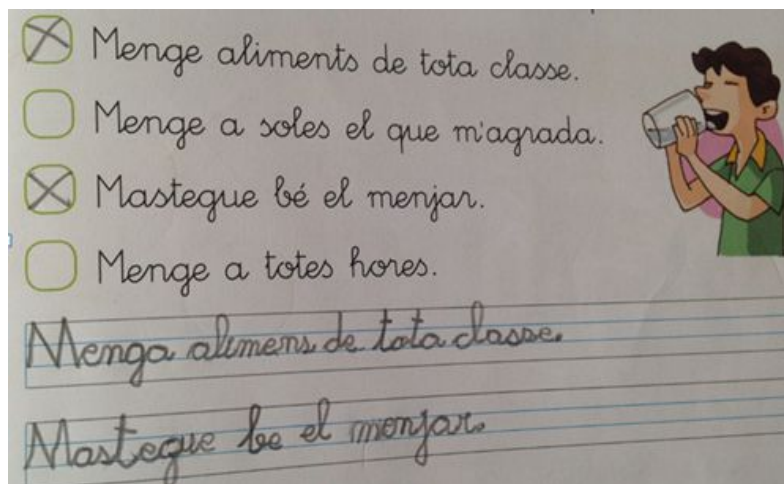 Menge aliments de tota classe.
Menge a soles el que m'agrada.
Mastegue bé el menjar.
Menge a totes hores.
Menga alimens de tota classe.
Mastegue be el menjar.